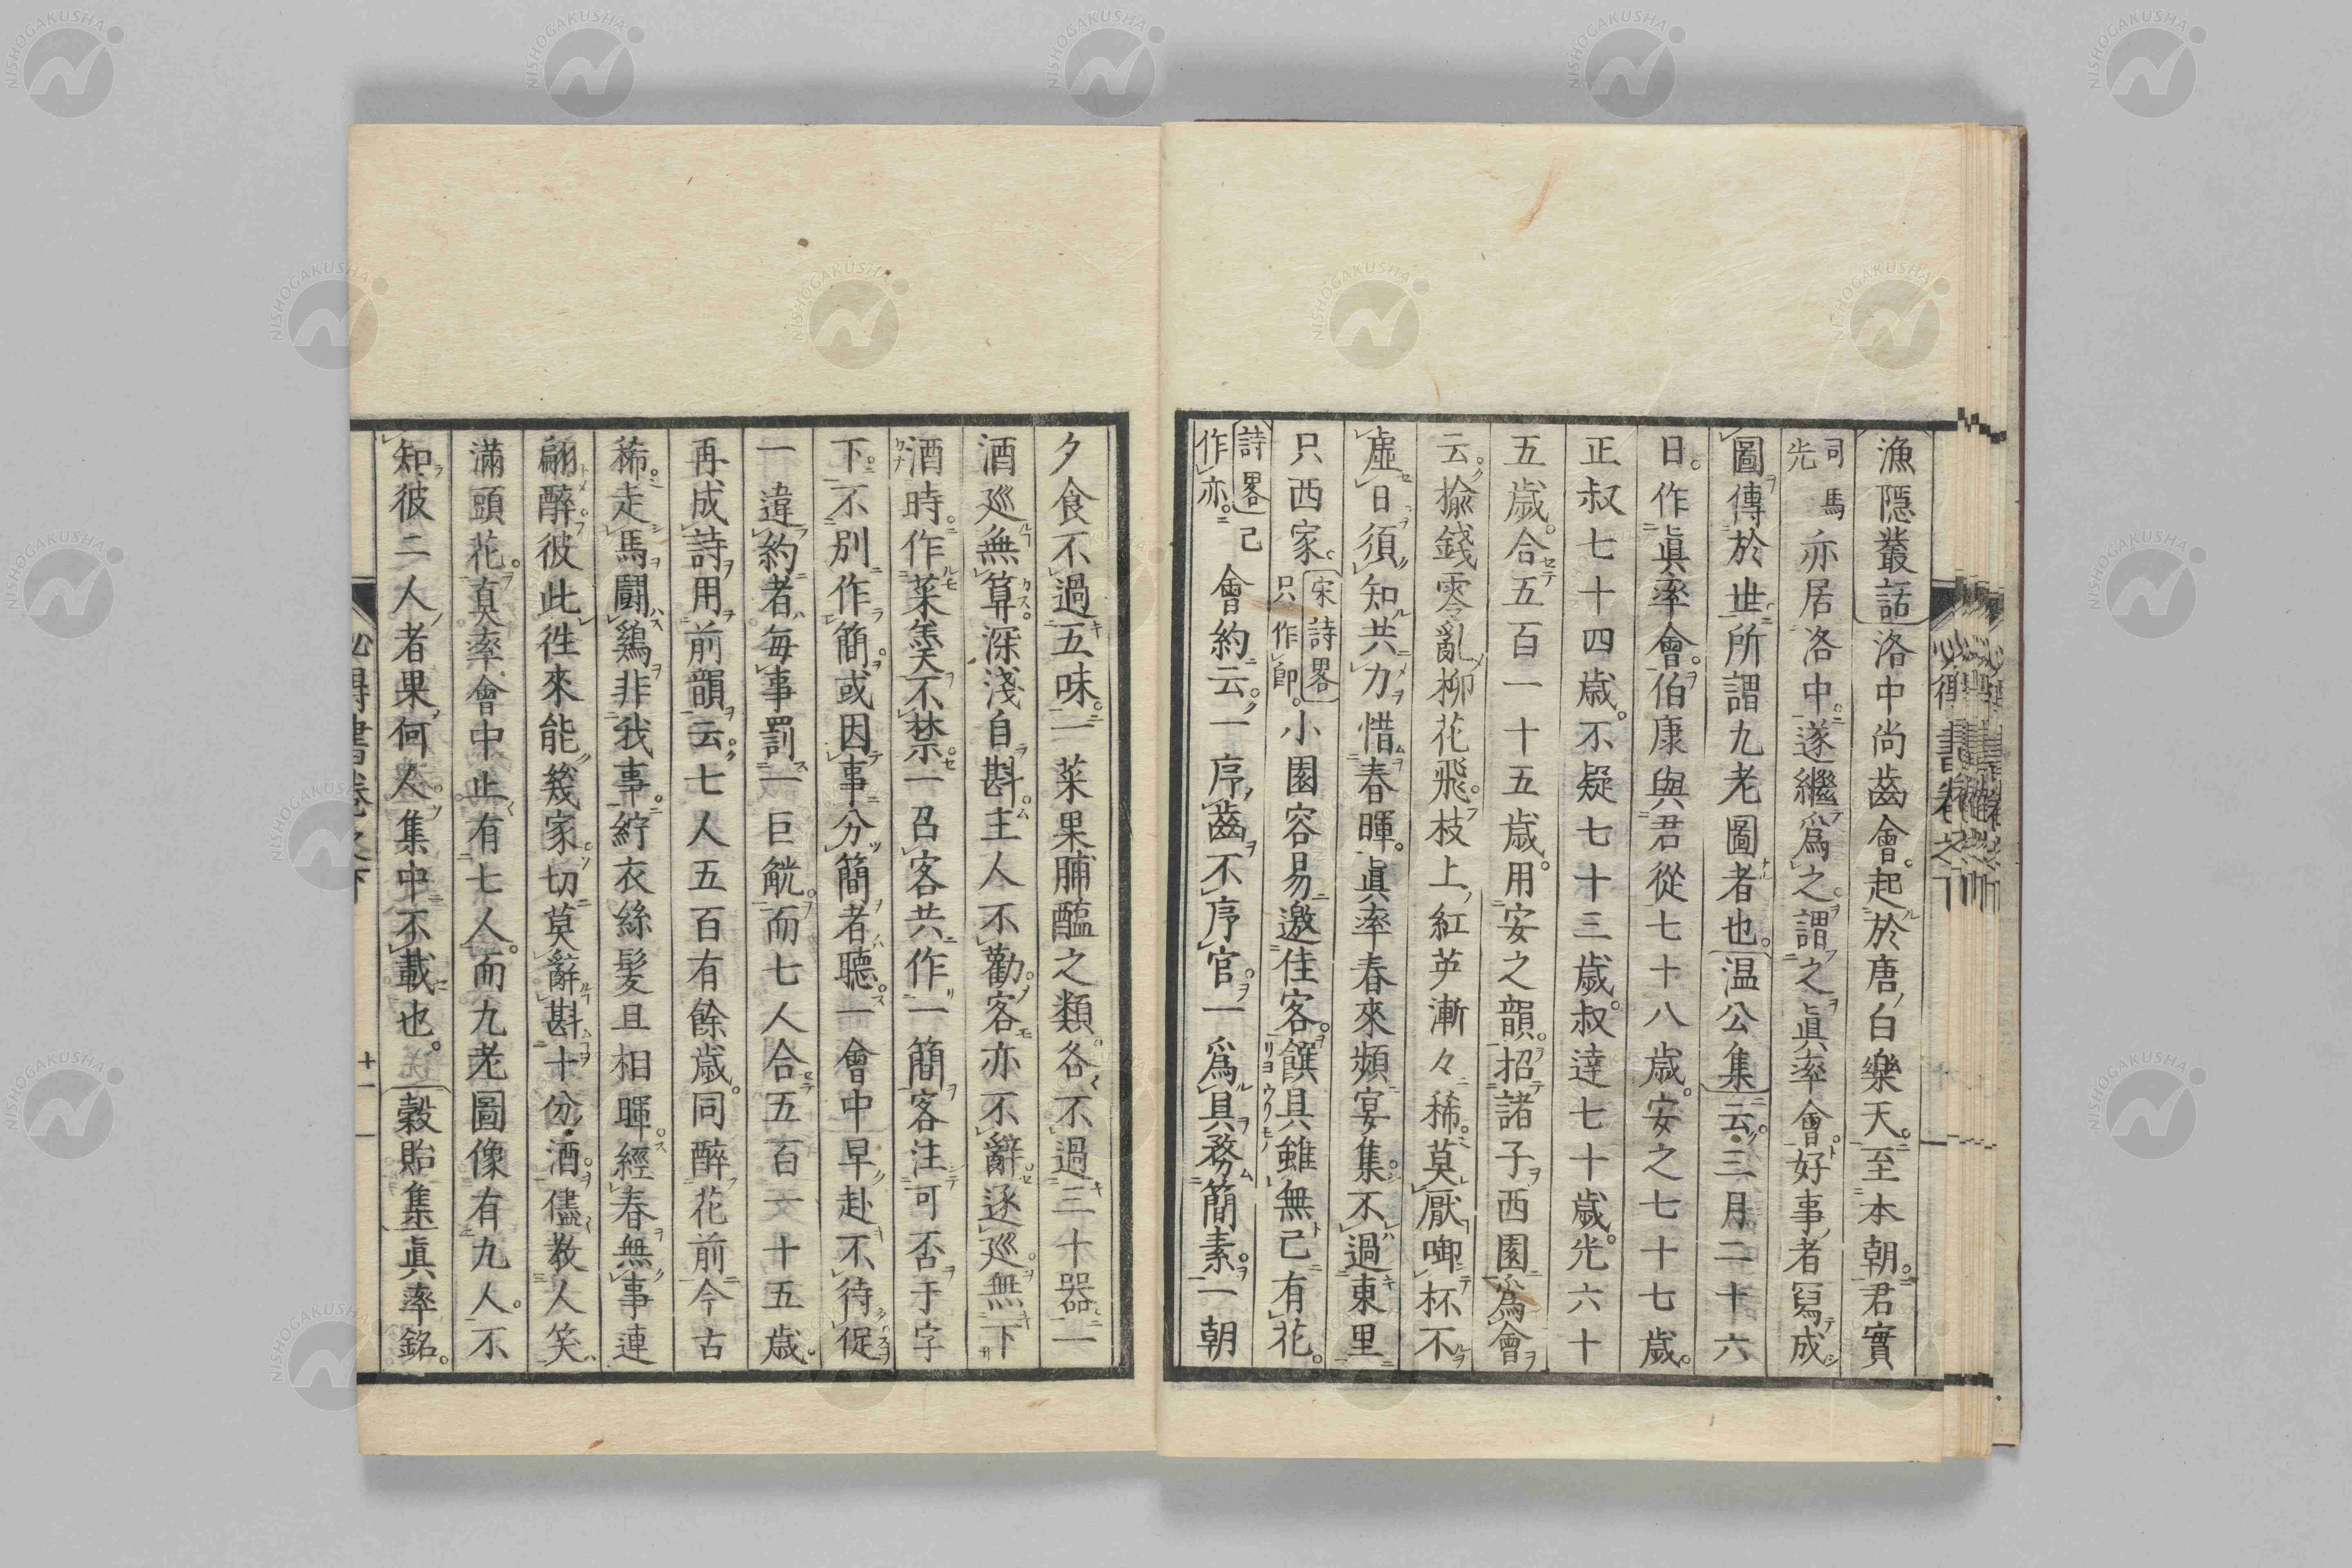 漁隱叢話洛中尚齒會。起於唐白樂天。至本朝。君實
司馬光亦居洛中。遂繼爲之。謂之眞率會。好事者寫成
圖傳於世。所謂九老圖者也。温公集云。三月二十六
日。作眞率會。伯康與君從七十八歳。安之七十七歳。
正叔七十四歳。不疑七十三歳。叔達七十歳。光六十
五歳。合五百一十五歳。用安之韻。招諸子西園爲會
云。揄錢零亂柳花飛。枝上紅英漸々稀。莫厭啣杯不
虛日。須知共力惜春暉。眞率春來頻宴集。不過東里
只西家。宋詩畧只作即。小園容易邀佳客。饌具雖無已有花。
詩畧已作亦。會約云。一序齒不序官。一爲具務簡素。一朝
夕食不過五味。一菜果脯醢之類。各不過三十器。一
酒廵無算。深淺自斟。主人不勸。客亦不辭。逐廵無下
酒時。作菜羹不禁。一召客共作一簡。客注可否于字
下。不別作簡。或因事分簡者聽。一會中早赴不待促
一違約者。毎事罰一巨觥。而七人合五百一十五歳。
再成詩用前韻云。七人五百有餘歳。同醉花前今古
稀。走馬鬪鷄非我事。紵衣絲髪且相暉。經春無事連
翩醉。彼此徃來能幾家。切莫辭斟十分酒。儘教人笑
滿頭花。眞率會中止有七人。而九老圖像有九人。不
知彼二人者果何人。集中不載也。穀貽集眞率銘。
必得書卷之下
十一